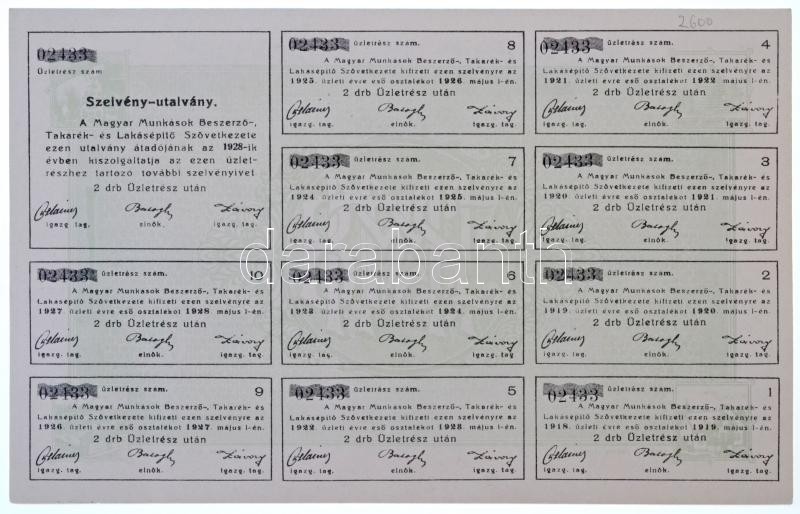 2600
02433
Üzletrész szám
Szelvény-utalvány.
A Magyar Munkások Beszerző-,
Takarék- és Lakásépítő Szövetkezete
ezen utalvány átadójának az 1928-ik
évben kiszolgaltatja az ezen üzlet-
részhez tartozó további szelvényivet
2 drb Üzletrész után
igazg. tag. elnök. igazg. tag.
02433 üzletrész szám. 10
A Magyar Munkások Beszerző-, Takarék- és
Lakásépítő Szövetkezete kifizeti ezen szelvényre az
1927. üzleti évre eső osztalékot 1928 május 1-én.
2 drb Üzletrész után
igazg. tag. elnök. igazg. tag.
02433 üzletrész szám. 9
A Magyar Munkások Beszerző-, Takarék- és
Lakásépítő Szövetkezete kifizeti ezen szelvényre az
1926. üzleti évre eső osztalékot 1927. május 1-én.
2 drb Üzletrész után
igazg. tag. elnök. igazg. tag.
02433 üzletrész szám. 8
A Magyar Munkások Beszerző-, Takarék- és
Lakásépítő Szövetkezete kifizeti ezen szelvényre az
1925. üzleti évre eső osztalékot 1926 május 1-én.
2 drb Üzletrész után
igazg. tag. elnök. igazg. tag.
02433 üzletrész szám. 7
A Magyar Munkások Beszerző-, Takarék- és
Lakásépítő Szövetkezete kifizeti ezen szelvényre az
1924. üzleti évre eső osztalékot 1925. május 1-én.
2 drb Üzletrész után
igazg. tag. elnök. igazg. tag.
02433 üzletrész szám. 6
A Magyar Munkások Beszerző-, Takarék- és
Lakásépítő Szövetkezete kifizeti ezen szelvényre az
1923. üzleti évre eső osztalékot 1924. május 1-én.
2 drb Üzletrész után
igazg. tag. elnök. igazg. tag.
02433 üzletrész szám. 5
A Magyar Munkások Beszerző-, Takarék- és
Lakásépítő Szövetkezete kifizeti ezen szelvényre az
1922. üzleti évre eső osztalékot 1923. május 1-én.
2 drb Üzletrész után
igazg. tag. elnök. igazg. tag.
02433 üzletrész szám. 4
A Magyar Munkások Beszerző-, Takarék- és
Lakásépítő Szövetkezete kifizeti ezen szelvényre az
1921. üzleti évre eső osztalékot 1922 május 1-én.
2 drb Üzletrész után
igazg. tag. elnök. igazg. tag.
02433 üzletrész szám. 3
A Magyar Munkások Beszerző-, Takarék- és
Lakásépítő Szövetkezete kifizeti ezen szelvényre az
1920. üzleti évre eső osztalékot 1921. május 1-én.
2 drb Üzletrész után
igazg. tag. elnök. igazg. tag.
02433 üzletrész szám. 2
A Magyar Munkások Beszerző-, Takarék- és
Lakásépítő Szövetkezete kifizeti ezen szelvényre az
1919. üzleti évre eső osztalékot 1920. május 1-én.
2 drb Üzletrész után
igazg. tag. elnök. igazg. tag.
02433 üzletrész szám. 1
A Magyar Munkások Beszerző-, Takarék- és
Lakásépítő Szövetkezete kifizeti ezen szelvényre az
1918. üzleti évre eső osztalékot 1919. május 1-én.
2 drb Üzletrész után
igazg. tag. elnök. igazg. tag.
darabanth